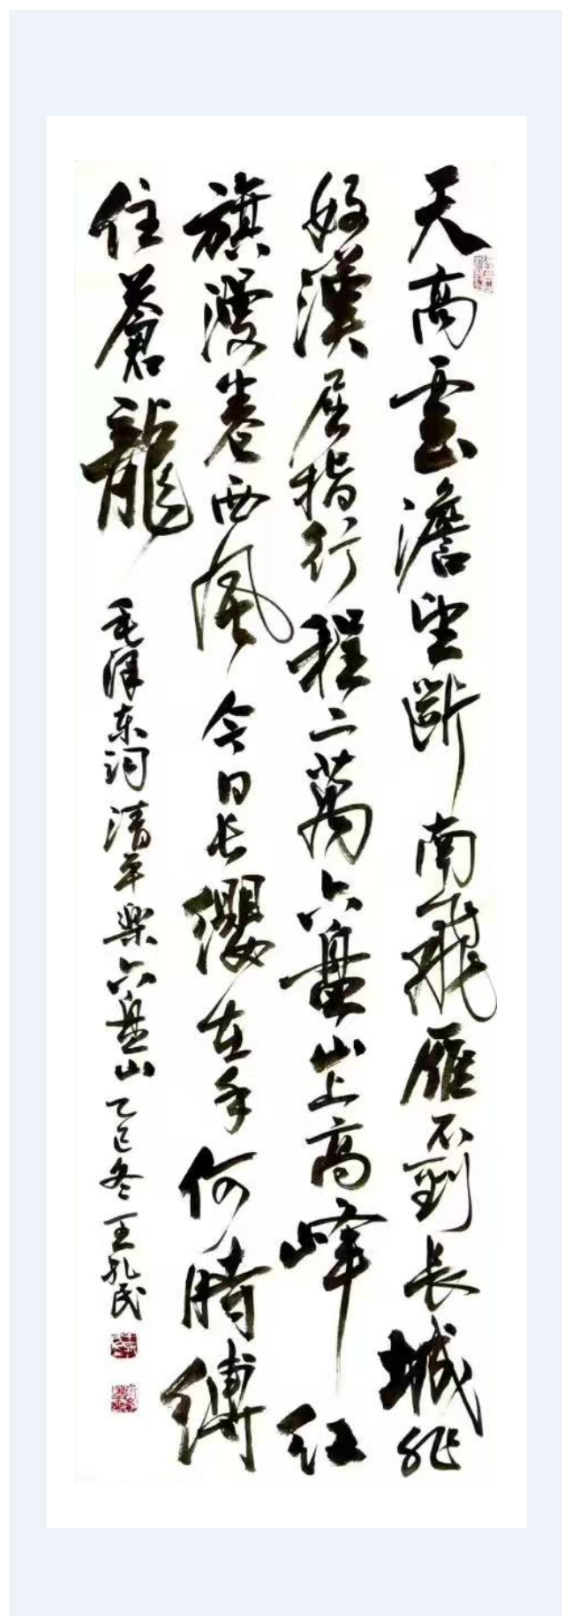 天高雲澹望斷南飛雁不到長城非
好漢屈指行程二萬六盤山上高峰紅
旗漫卷西風今日長纓在手何時縛
住蒼龍
毛泽东词清平樂六盘山乙巳冬王孔民